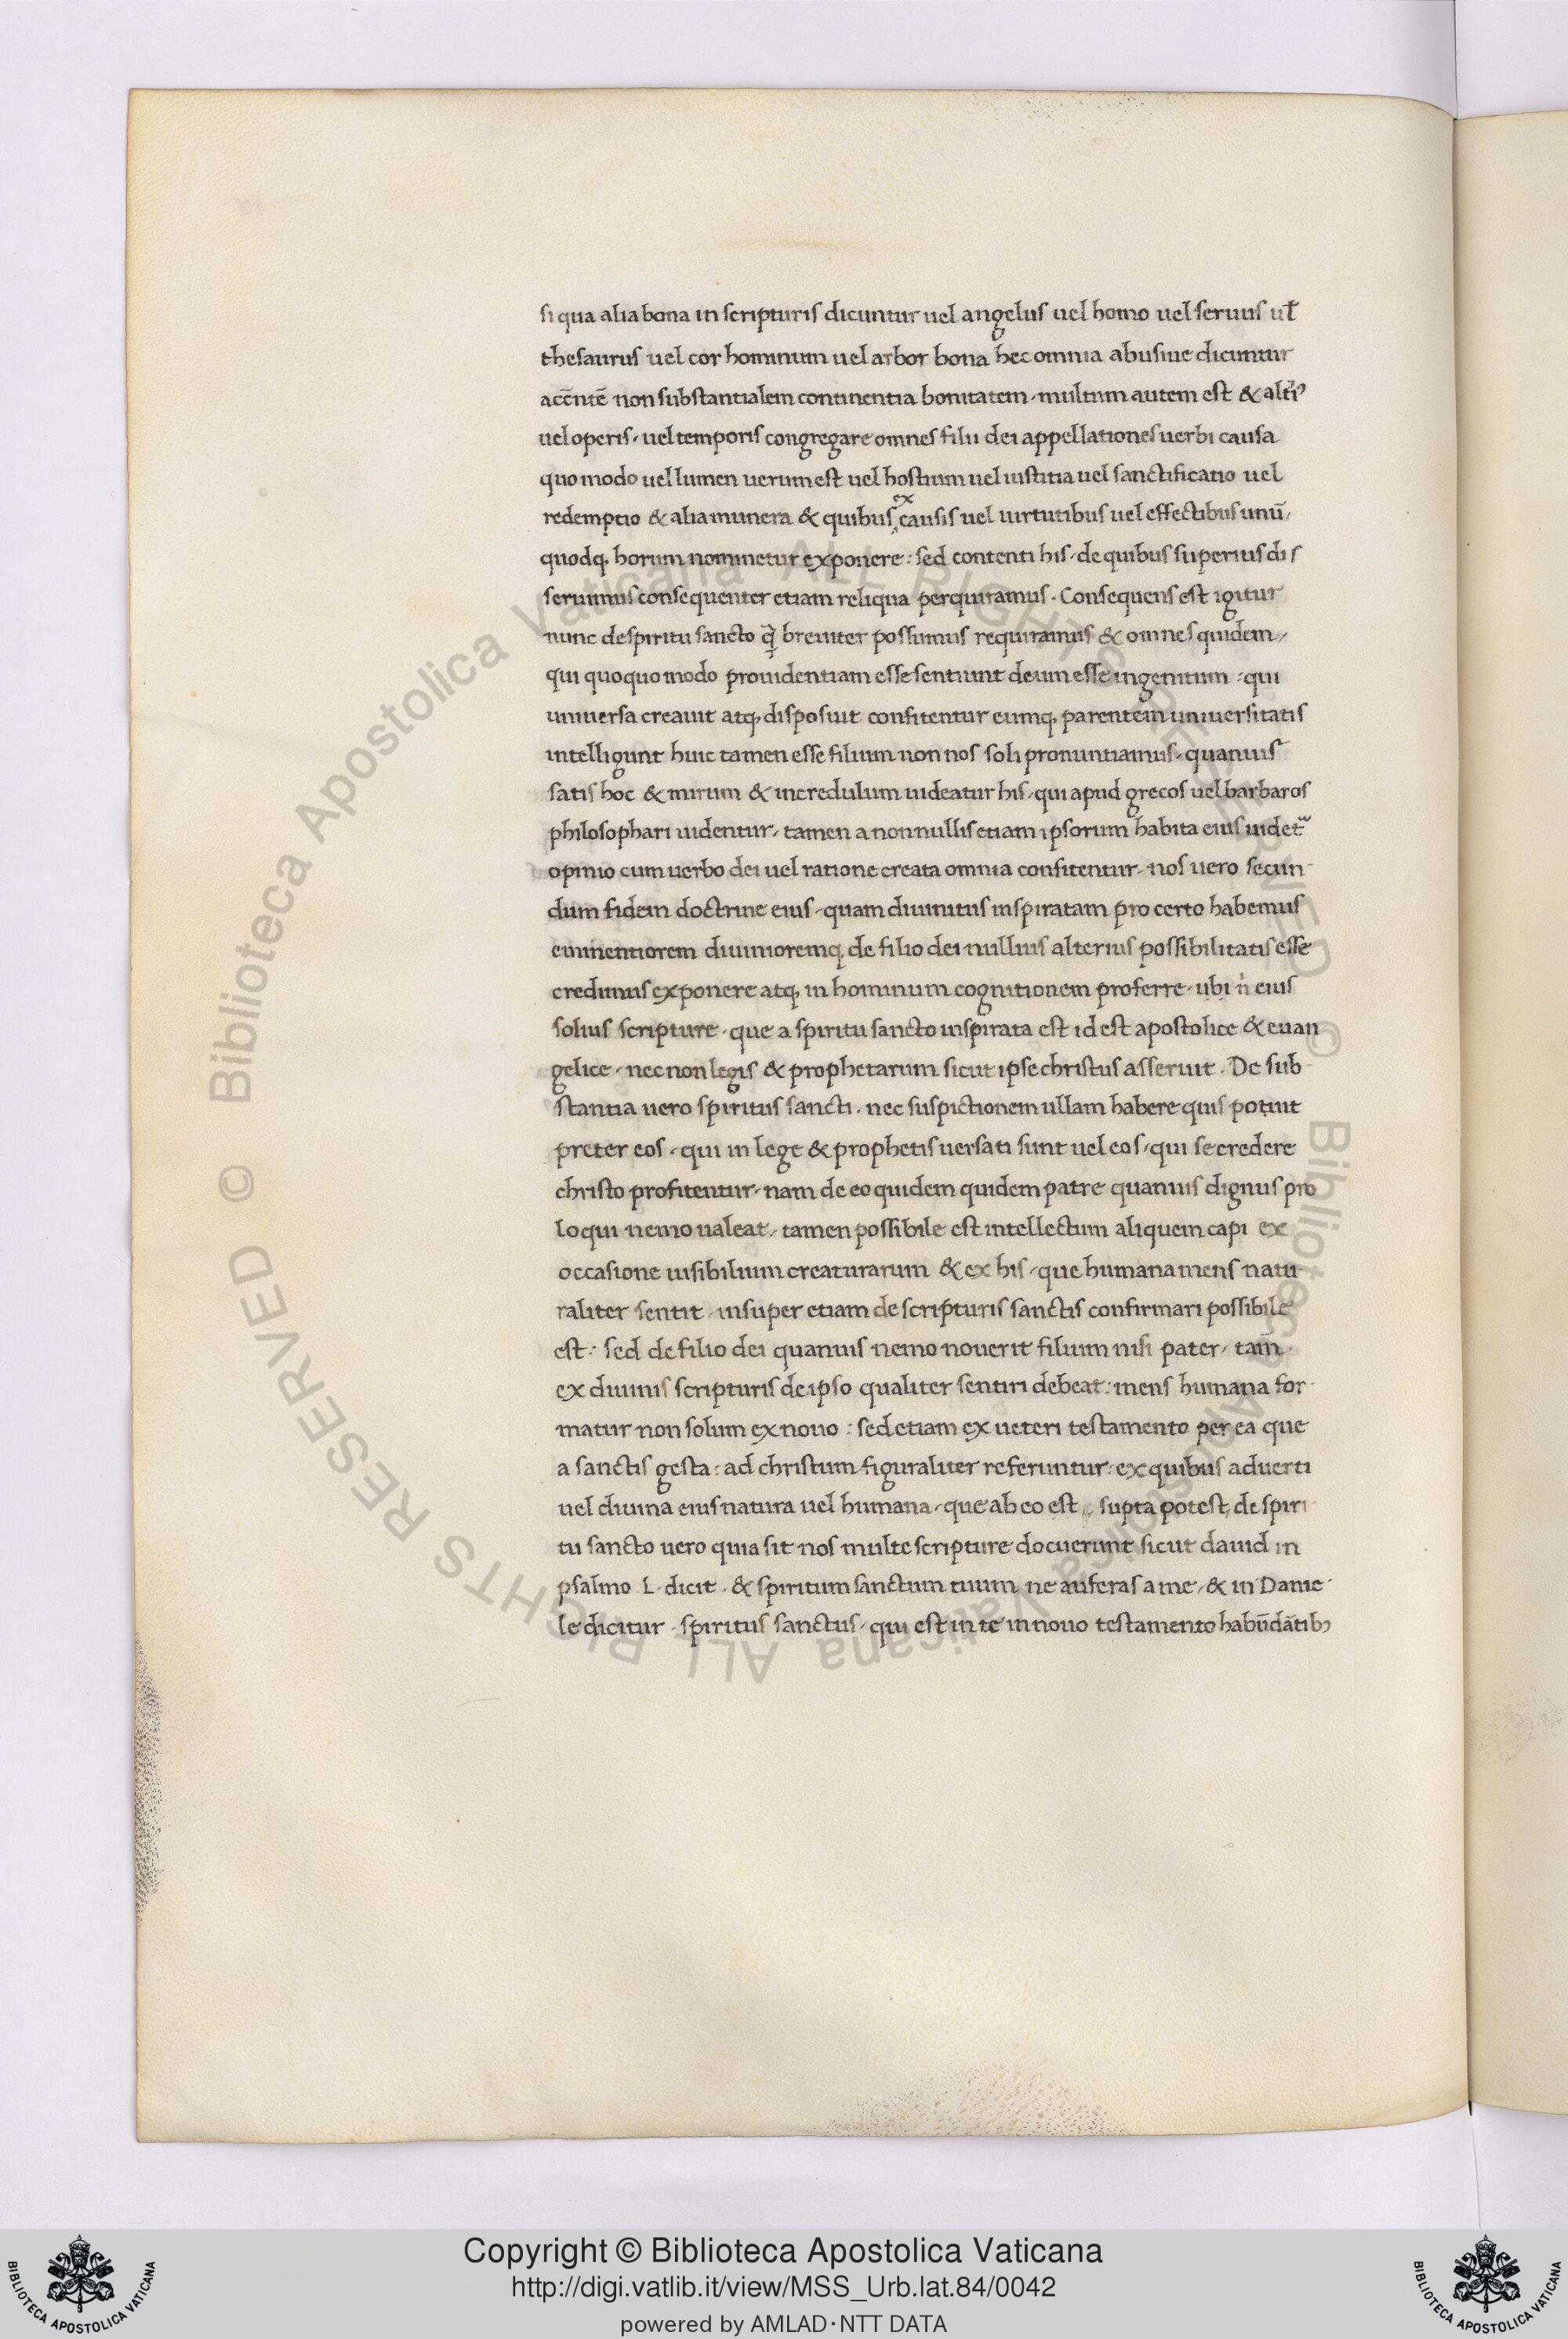 si qua alia bona in scripturis dicuntur uel angelus uel homo uel seruus ul̄
thesaurus uel cor hominum uel arbor bona hec omnia abusiue dicuntur
acc̄ntē non substantialem continentia bonitatem · multum autem est & alt̄iꝰ
uel operis · uel temporis congregare omnes filii dei appellationes uerbi causa
quo modo uel lumen uerum est uel hostium uel iustitia uel sanctificatio uel
redemptio & alia munera & quibus ex causis uel uirtutibus uel effectibus unū
quodq, horum nominetur exponere : sed contenti his · de quibus superius dis
seruimus consequenter etiam reliqua perquiramus · Consequens est igitur
nunc de spiritu sancto q̄ breuiter possumus requiramus & omnes quidem ·
qui quoquo modo prouidentiam esse sentiunt deum esse ingenitum : qui
uniuersa creauit atq, disposuit confitentur eumq, parentem uniuersitatis
intelligunt huic tamen esse filium non nos soli pronuntiamus · quanuis
satis hoc & mirum & incredulum uideatur his · qui apud grecos uel barbaros
philosophari uidentur · tamen a nonnullis etiam ipsorum habita eius uidet᷑
opinio cum uerbo dei uel ratione creata omnia confitentur · nos uero secun
dum fidem doctrine eius · quam diuinitus inspiratam pro certo habemus
eminentiorem diuinioremq, de filio dei nullius alterius possibilitatis esse
credimus exponere atq, in hominum cognitionem proferre · ubi n̄ eius
solius scripture · que a spiritu sancto inspirata est id est apostolice & euan
gelice · nec non legis & prophetarum sicut ipse christus asseruit · De sub
stantia uero spiritus sancti · nec suspictionem ullam habere quis potuit
preter eos · qui in lege & prophetis uersati sunt uel eos · qui se credere
christo profitentur · nam de eo quidem quidem patre quanuis dignus pro
loqui nemo ualeat · tamen possibile est intellectum aliquem capi ex
occasione uisibilium creaturarum & ex his · que humana mens natu
raliter sentit · insuper etiam de scripturis sanctis confirmari possibile
est : sed de filio dei quanuis nemo nouerit filium nisi pater · tam̄
ex diuinis scripturis de ipso qualiter sentiri debeat : mens humana for
matur non solum ex nouo : sed etiam ex ueteri testamento per ea que
a sanctis gesta : ad christum figuraliter referuntur : ex quibus aduerti
uel diuina eius natura uel humana · que ab eo est supta potest, de spiri
tu sancto uero quia sit nos multe scripture docuerunt sicut dauid in
psalmo L · dicit · & spiritum sanctum tuum ne auferas a me · & in Danie
le dicitur · spiritus sanctus · qui est in te in nouo testamento habūdātibꝰ
Copyright © Biblioteca Apostolica Vaticana
http://digi.vatlib.it/view/MSS_Urb.lat.84/0042
powered by AMLAD·NTT DATA
BIBLIOTECA APOSTOLICA VATICANA
BIBLIOTECA APOSTOLICA VATICANA
© Biblioteca Apostolica Vaticana ALL RIGHTS RESERVED
© Biblioteca Apostolica Vaticana ALL RIGHTS RESERVED